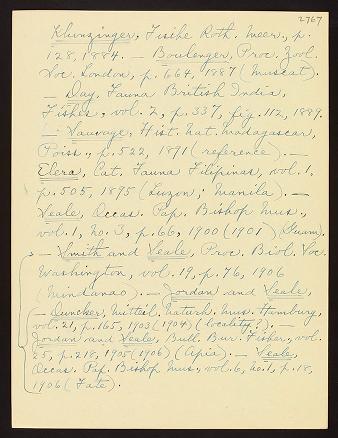 2767
Klunzinger, Fische Roth. Meer., p.
128, 1884. — Boulenger, Proc. Zool.
Soc. London, p. 664, 1887 (Muscat).
— Day, Fauna British India,
Fishes, vol. 2, p. 337, fig. 112, 1889.
— Sauvage, Hist. Nat. Madagascar,
Poiss., p. 522, 1891 (reference). —
Elera, Cat. Fauna Filipinas, vol. 1,
p. 505, 1895 (Luzon; Manila). —
Seale, Occas. Pap. Bishop Mus.,
vol. 1, no. 3, p. 66, 1900 (1901) (Guam).
— Smith and Seale, Proc. Biol. Soc.
Washington, vol. 19, p. 76, 1906
(Mindanao). — Jordan and Seale,
— Duncker, Mitteil. Naturh. Mus. Hamburg,
vol. 21, p. 165, 1903 (1904) (locality?). —
Jordan and Seale, Bull. Bur. Fisher., vol.
25, p. 218, 1905 (1906) (Apia). — Seale,
Occas. Pap. Bishop Mus., vol. 6, no. 1, p. 18,
1906 (Fate).